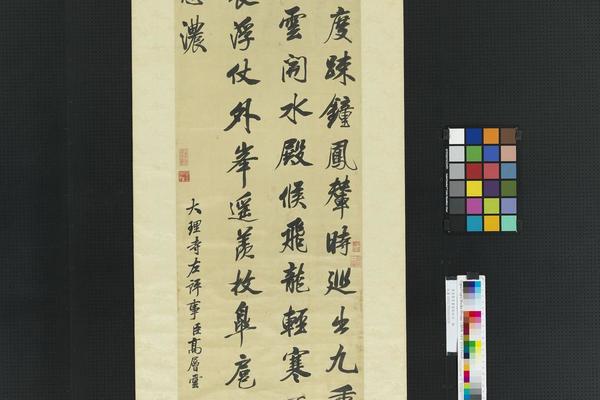 度疎鐘鳳輦時巡出九重
雲開水殿候飛龍輕寒
浮仗外峯遥羨枚皐扈
濃
大理寺左評事臣高層雲